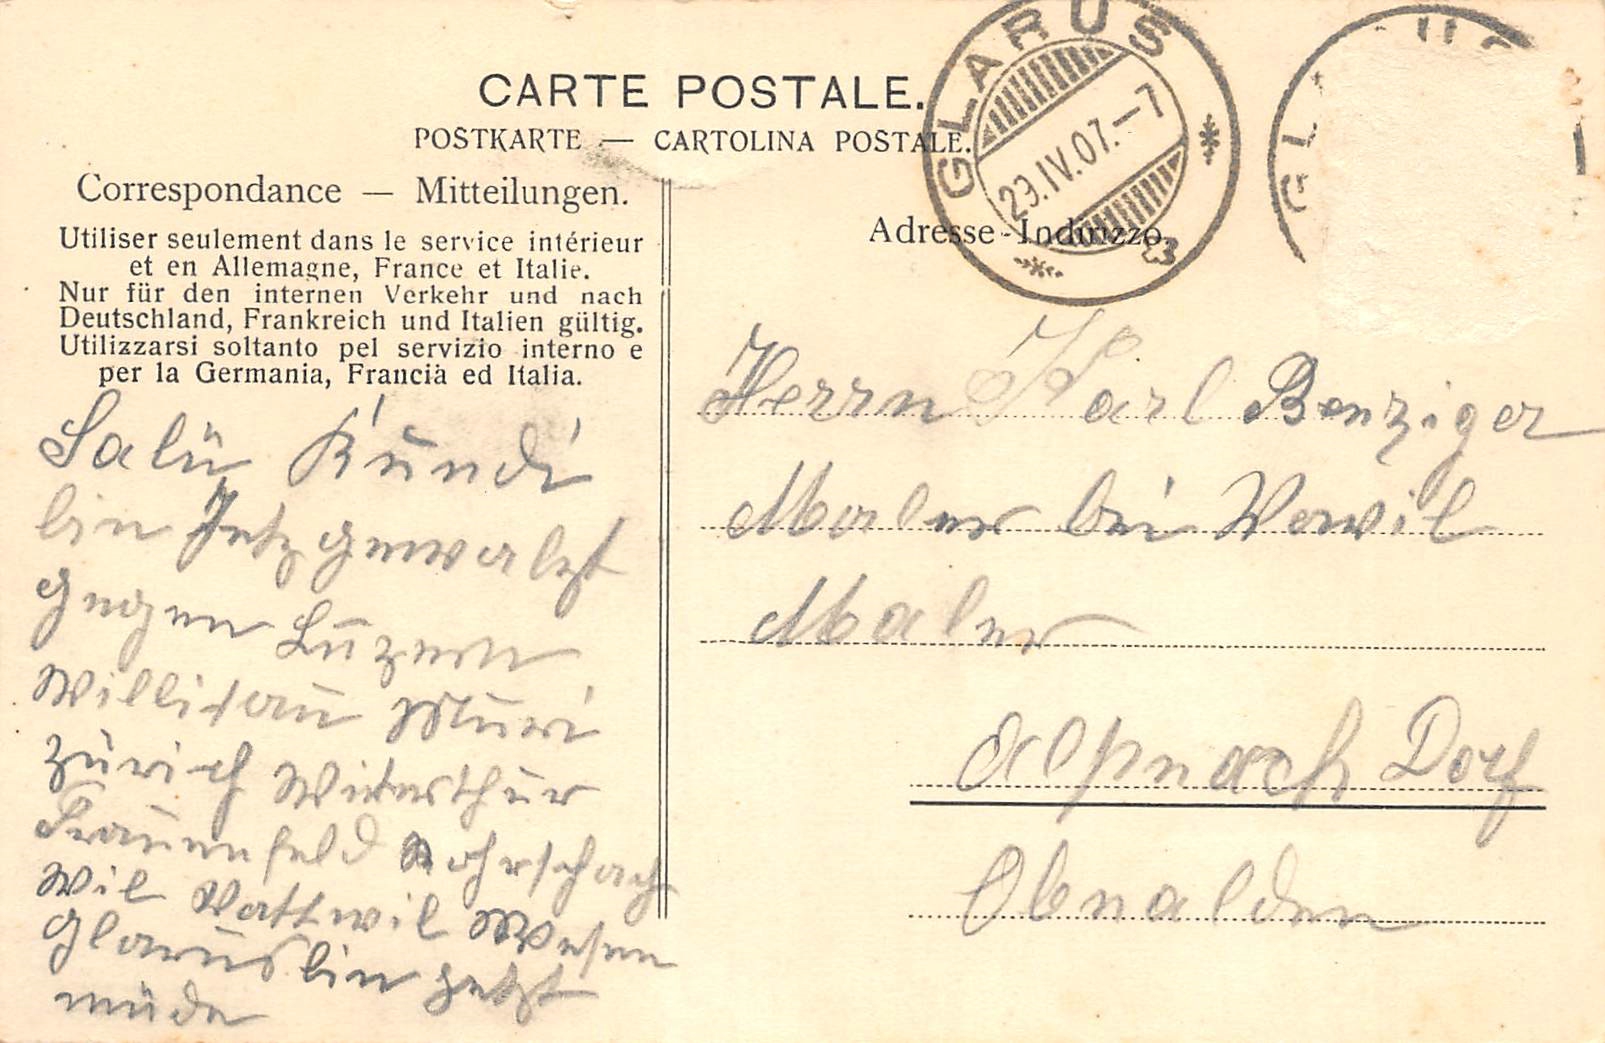 CARTE POSTALE.
POSTKARTE — CARTOLINA POSTALE.
Correspondance — Mitteilungen.
Utiliser seulement dans le service intérieur
et en Allemagne, France et Italie.
Nur für den internen Verkehr und nach
Deutschland, Frankreich und Italien gültig.
Utilizzarsi soltanto pel servizio interno e
per la Germania, Francia ed Italia.
Salü Kündi
bin Jetz gewalzt
gegen Luzern
Willisau Muri
Zürich Winterthur
Frauenfeld Rohrschach
Wil Wattwil Wesen
Glarus bin jetzt
müde
GLARUS
23.IV.07.–7
GLARUS
Adresse - Indirizzo.
Herrn Karl Benziger
Maler bei
Maler
Alpnach Dorf
Obwalden